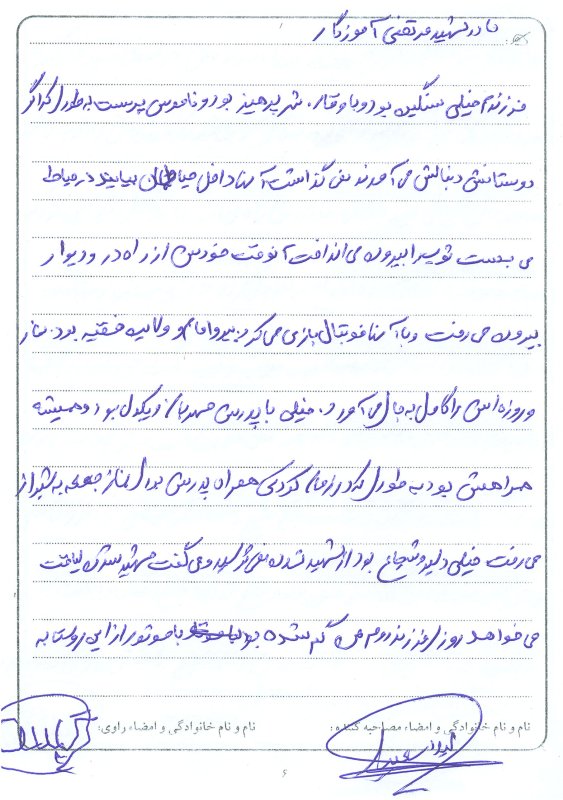 مادر شهید مرتضی آموزگار
فرزندم خیلی سنگین بود و با وقار، شهر پرهیز بود و ناموس پرست به طوری که اگر
دوستانش دنبالش می آمدند نمی گذاشت آنها داخل حیاطمان بیایند در حیاط
می بست توپ را بیرون می انداخت آنوقت خودش از راه در و دیوار
بیرون می رفت و با آنها فوتبال بازی می کرد. پیرو امام و ولایت فقیه بود. نماز
و روزه اش را کامل به جا می آورد. خیلی با پدرش مهربان و یکدل بود و همیشه
همراهش بود به طوری که در زمان کودکی همراه پدرش برای نماز جمعه به شیراز
می رفت خیلی دلیر و شجاع بود از شهید شدن نمی ترسید و می گفت شهید شدن لیاقت
می خواهد روزی فرزند دوم من گم شده بود با موتور از این روستا به
نام و نام خانوادگی و امضاء مصاحبه کننده:
نام و نام خانوادگی و امضاء راوی:
۶